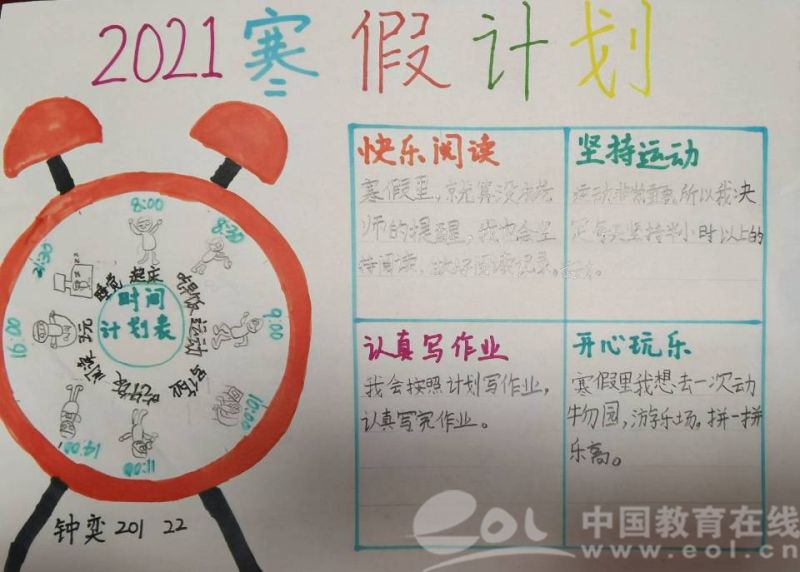 2021寒假计划
8:00
8:30
9:00
10:00
11:00
14:00
16:00
21:30
起床
吃早饭
运动
写作业
吃午饭
阅读
玩
睡觉
时间
计划表
钟奕 201 22
快乐阅读
寒假里,就算没有老
师的提醒,我也会坚
持阅读,做好阅读记录。
坚持运动
运动非常重要,所以我决
定每天坚持半小时以上的
认真写作业
我会按照计划写作业,
认真写完作业。
开心玩乐
寒假里我想去一次动
物园,游乐场。拼一拼
乐高。
eol 中国教育在线
www.eol.cn